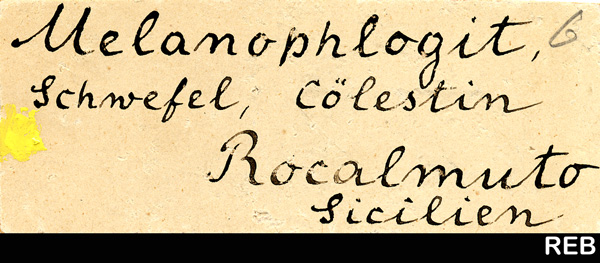 Melanophlogit, 6
Schwefel, Cölestin
Rocalmuto
Sicilien.
REB